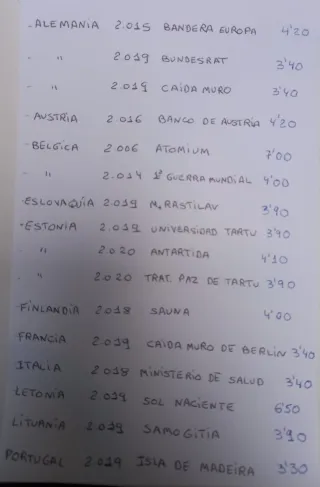 - ALEMANIA 2.015 BANDERA EUROPA 4'20
- " 2.019 BUNDESRAT 3'40
- " 2.019 CAIDA MURO 3'40
- AUSTRIA 2.016 BANCO DE AUSTRIA 4'20
- BÉLGICA 2.006 ATOMIUM 7'00
- " 2.014 1ª GUERRA MUNDIAL 4'00
- ESLOVAQUIA 2.019 M. RASTILAV 3'90
- ESTONIA 2.019 UNIVERSIDAD TARTU 3'90
- " 2.020 ANTARTIDA 4'10
- " 2.020 TRAT. PAZ DE TARTU 3'90
FINLANDIA 2.018 SAUNA 4'00
FRANCIA 2.019 CAIDA MURO DE BERLIN 3'40
ITALIA 2.018 MINISTERIO DE SALUD 3'40
LETONIA 2.019 SOL NACIENTE 6'50
LITUANIA 2.019 SAMOGITIA 3'90
PORTUGAL 2.019 ISLA DE MADEIRA 3'30